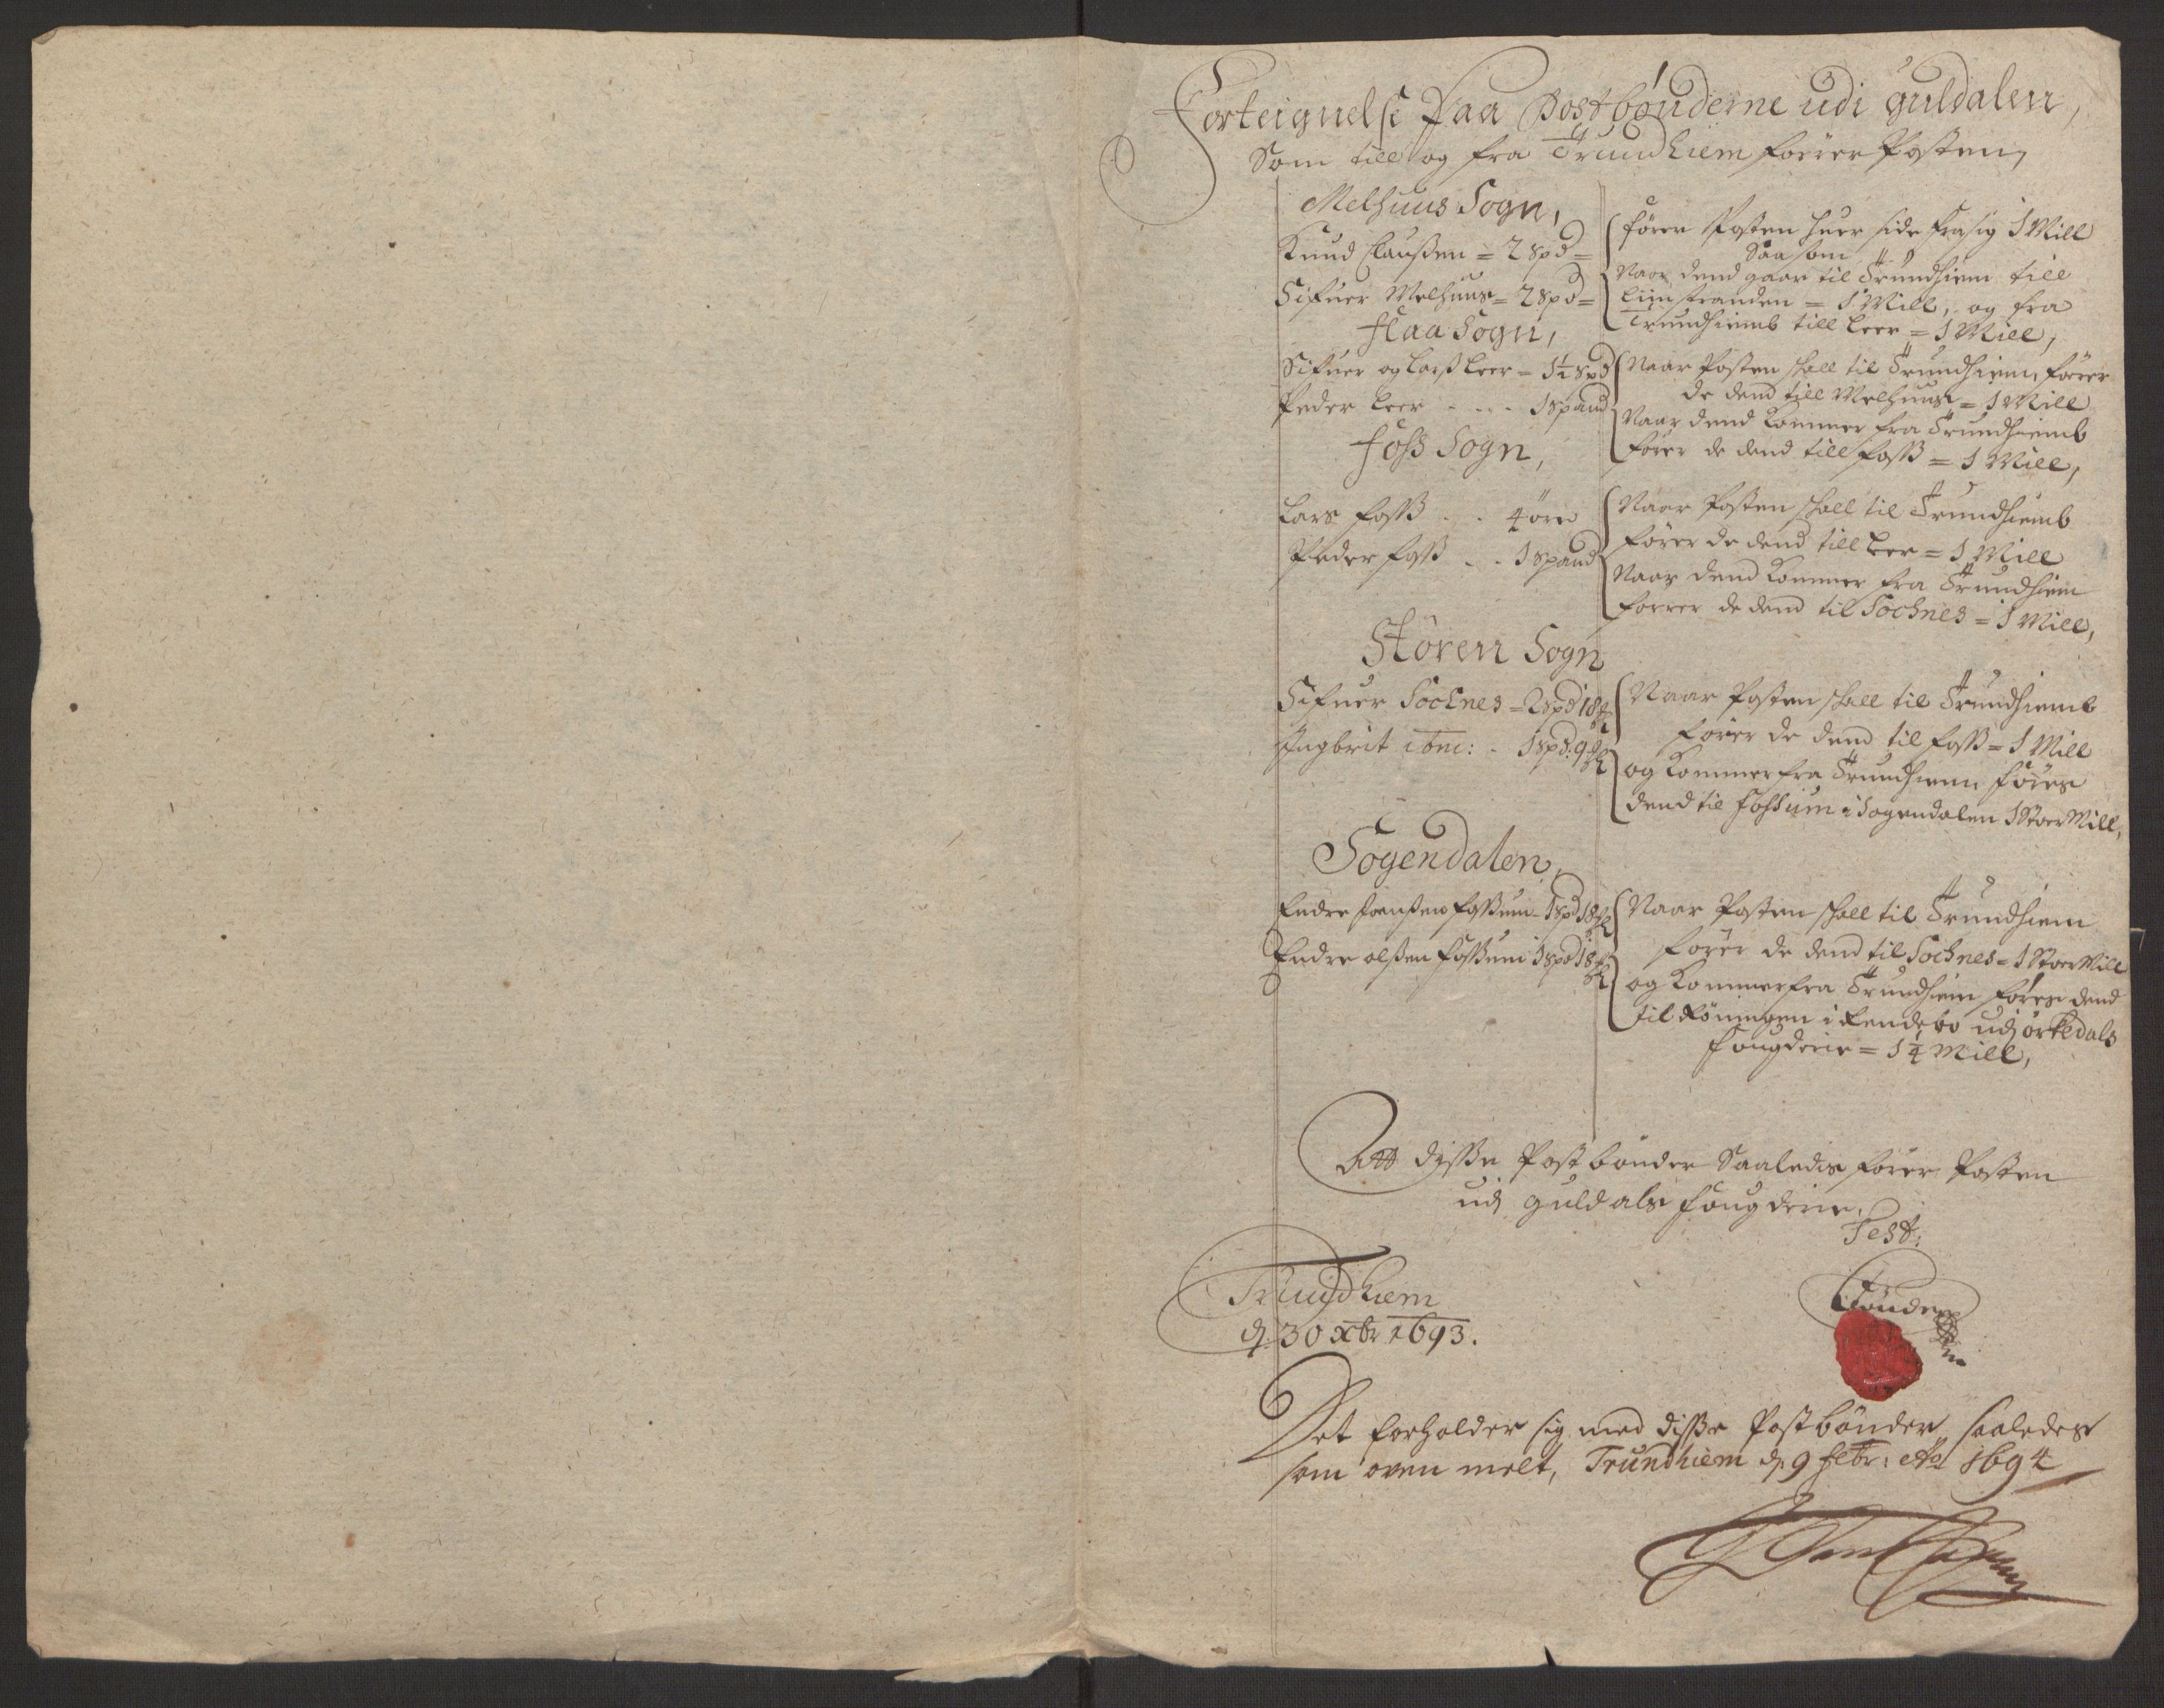 Forteignelse Paa Postbønderne udi Guldalen,
Som till og fra Trundhiem förrer Posten,
Melhuus Sogn,
Knud Claußen = 2 spd =
Sifuer Melhuus = 2 spd =
fører Posten huer side fra sig 1 Mill
Saa som
Naar dend gaar til Trundhiem till
Liinstranden = 1 Mill, og fra
Trundhiemb till Leer = 1 Mill,
Flaa Sogn,
Sifuer og Larß Leer = 1½ spd
Peder Leer - - - 1 spand
Naar Posten skall til Trundhiem, förer
de dend till Melhuus = 1 Mill
Naar dend kommer fra Trundhiemb
förer de dend till Foss = 1 Mill,
Foss Sogn,
Lars Foss - - 4 öre
Peder Foss - - 1 spand
Naar Posten skall til Trundhiemb
förer de dend till Leer = 1 Mill
Naar dend kommer fra Trundhiem
förrer de dend til Sochnes = 1 Mill,
Stören Sogn
Sifuer Sochnes = 2 spd 18
Ingbrit ibm: - 1 spd: 9
Naar Posten skall til Trundhiemb
förer de dend til Foss = 1 Mill
og kommer fra Trundhiem föres
dend til Fossum i Sogendalen 1 Stoer Mill,
Sogendalen,
Endre Foßum - 1 spd 18
Endre Olßen Foßum 1 spd 18
Naar Posten skall til Trundhiem
förer de dend til Sochnes = 1 Stoer Mill
og kommer fra Trundhiem föres dend
til i Rendebo udj Orkedals
fougderie = 1¼ Mill,
Att disse Postbønder Saaledis förer Posten
udj Guldals fougderie,
Test:
Trundhiem
d. 30 xbr 1693.
Det forholder sig med disse Postbønder saaledes
som oven melt, Trundhiem d. 9 Febr: Ao 1694